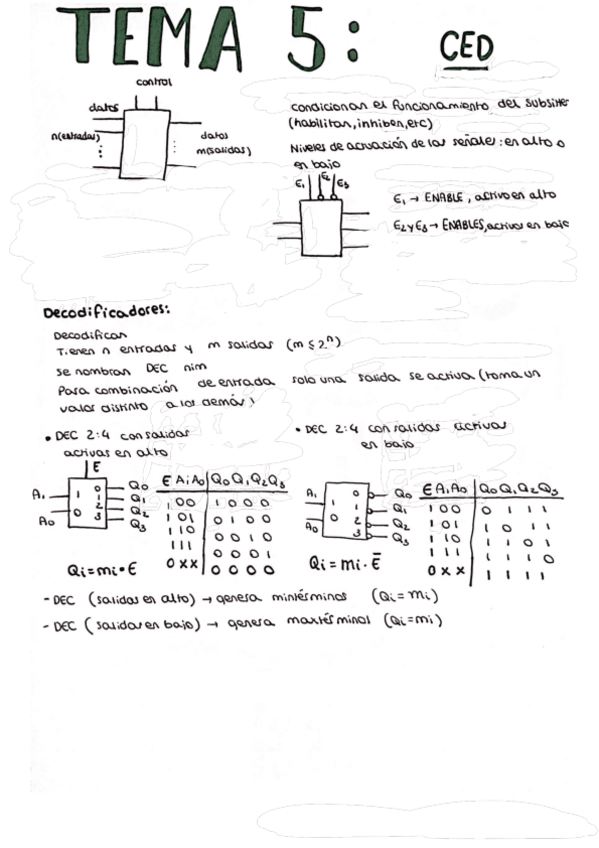 TEMA 5: CED
control
datos
n(entradas)
datos
m(salidas)
condicionan el funcionamiento del subsistem
(habilitan, inhiben, etc)
Niveles de actuación de las señales: en alto o
en bajo
E₁ E₂ E₃
E₁ → ENABLE, activo en alto
E₂ y E₃ → ENABLES, activos en bajo
Decodificadores:
Decodifican
Tienen n entradas y m salidas (m ≤ 2ⁿ)
se nombran DEC n:m
Para combinación de entrada solo una salida se activa (toma un
valor distinto a los demás)
• DEC 2:4 con salidas
activas en alto
• DEC 2:4 con salidas activas
en bajo
E
A₁ 1 0 Q₀
1 Q₁
A₀ 0 2 Q₂
3 Q₃
E A₁ A₀ Q₀ Q₁ Q₂ Q₃
1 0 0 1 0 0 0
1 0 1 0 1 0 0
1 1 0 0 0 1 0
1 1 1 0 0 0 1
0 x x 0 0 0 0
Qi = mi · E
A₁ 1 0 Q₀
1 Q₁
A₀ 0 2 Q₂
3 Q₃
E A₁ A₀ Q₀ Q₁ Q₂ Q₃
1 0 0 0 1 1 1
1 0 1 1 0 1 1
1 1 0 1 1 0 1
1 1 1 1 1 1 0
0 x x 1 1 1 1
Qi = mi · E̅
- DEC (salidas en alto) → genera mintérminos (Qi = mi)
- DEC (salidas en bajo) → genera maxtérminos (Qi = mi)